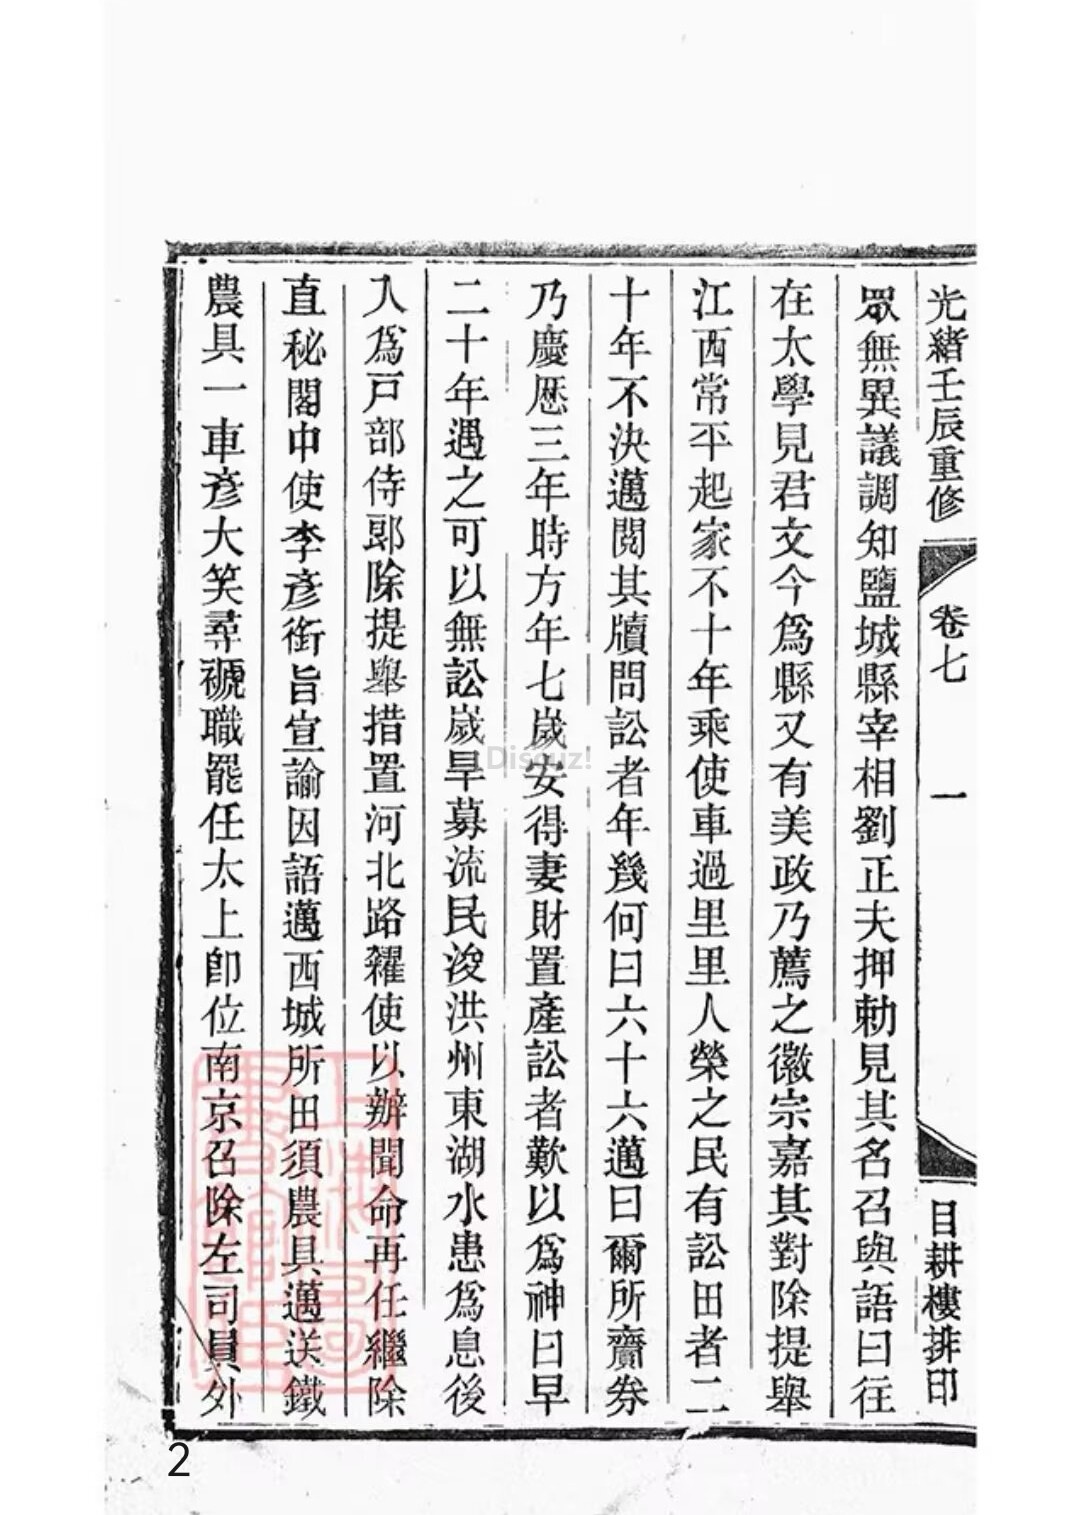 光緒壬辰重修
卷七
一
目耕樓排印
眾無異議調知鹽城縣宰相劉正夫押勅見其名召與語曰往
在太學見君文今爲縣又有美政乃薦之徽宗嘉其對除提舉
江西常平起家不十年乘使車過里里人榮之民有訟田者二
十年不決邁閱其牘問訟者年幾何曰六十六邁曰爾所齎劵
乃慶歷三年時方年七歲安得妻財置產訟者歎以爲神曰早
二十年遇之可以無訟歲旱募流民浚洪州東湖水患爲息後
入爲戸部侍郎除提舉措置河北路糴使以辦聞命再任繼除
直秘閣中使李彥銜旨宣諭因語邁西城所田須農具邁送鐵
農具一車彥大笑尋褫職罷任太上卽位南京召除左司員外
Discuz!
2